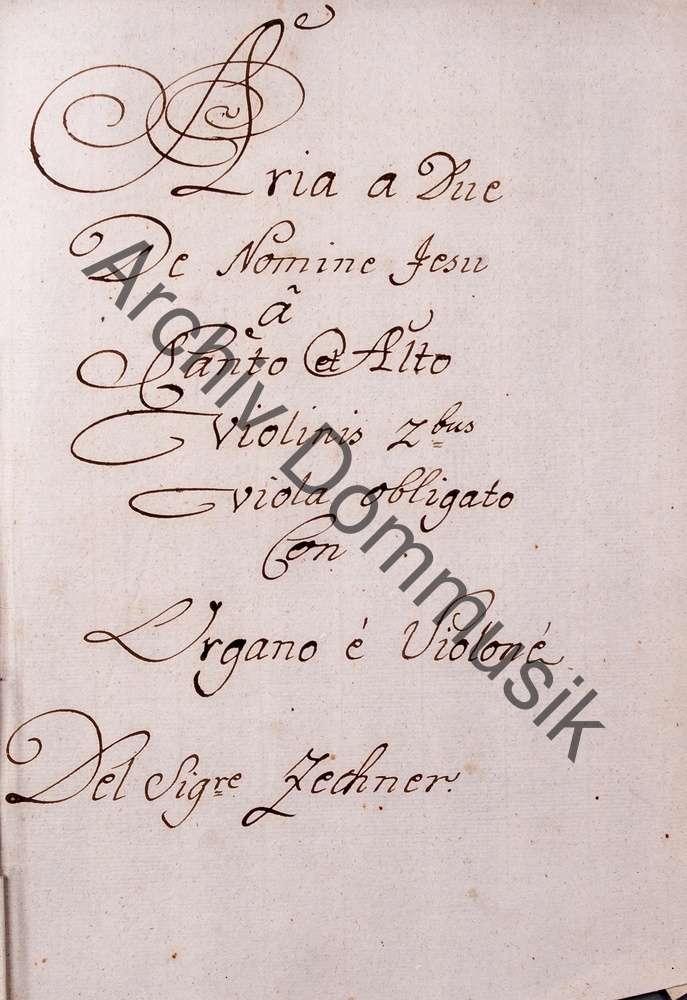 Aria a Due
De Nomine Jesu
â
Canto et Alto
Violinis 2bus
viola obligato
Con
L'Organo é Violoné
Del Sigre Zechner.
Archiv Dommusik